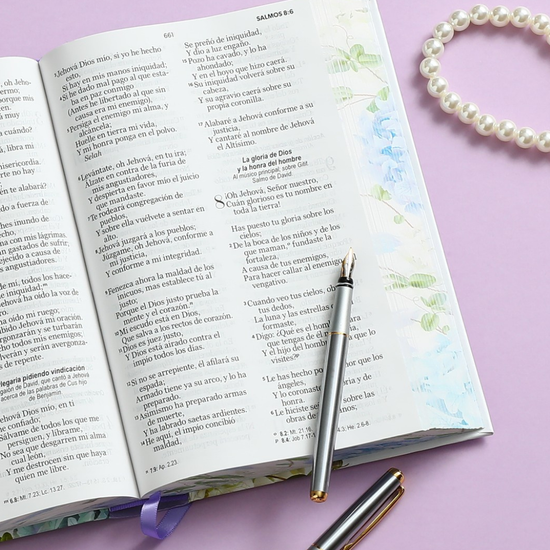 661
SALMOS 8:6
uí, oh Jeho-
termo;
orque mis
en.
á muy
a cuándo?
á, libra mi
isericordia.
erte no hay
en te alabará?
o a fuerza de
hes inundo de
cho,
ma con mis lágrimas.
án gastados de sufrir;
ecido a causa de
angustiadores.
e mí, todos los hace-
e iniquidad;
hová ha oído la voz de
o.
ha oído mi ruego;
bido Jehová mi oración.
rgonzarán y se turbarán
cho todos mis enemigos;
lverán y serán avergonza-
s de repente.
legaria pidiendo vindicación
gaión de David, que cantó a Jehová
acerca de las palabras de Cus hijo
de Benjamín
ová Dios mío, en ti
he confiado;
Sálvame de todos los que me
persiguen, y líbrame,
No sea que desgarren mi alma
cual león,
Y me destrocen sin que haya
quien me libre.
6.8: Mt. 7.23; Lc. 13.27.
3 Jehová Dios mío, si yo he hecho
esto,
Si hay en mis manos iniquidad;
4 Si he dado mal pago al que esta-
ba en paz conmigo
(Antes he libertado al que sin
causa era mi enemigo),
5 Persiga el enemigo mi alma, y
alcáncela;
Huelle en tierra mi vida,
Y mi honra ponga en el polvo.
Selah
6 Levántate, oh Jehová, en tu ira;
Álzate en contra de la furia de
mis angustiadores,
Y despierta en favor mío el juicio
que mandaste.
7 Te rodeará congregación de
pueblos,
Y sobre ella vuélvete a sentar en
alto.
8 Jehová juzgará a los pueblos;
Júzgame, oh Jehová, conforme a
mi justicia,
Y conforme a mi integridad.
9 Fenezca ahora la maldad de los
inicuos, mas establece tú al
justo;
Porque el Dios justo prueba la
mente y el corazón.
10 Mi escudo está en Dios,
Que salva a los rectos de corazón.
11 Dios es juez justo,
Y Dios está airado contra el
impío todos los días.
12 Si no se arrepiente, él afilará su
espada;
Armado tiene ya su arco, y lo ha
preparado.
13 Asimismo ha preparado armas
de muerte,
Y ha labrado saetas ardientes.
14 He aquí, el impío concibió
maldad,
7.9: Ap. 2.23.
Se preñó de iniquidad,
Y dio a luz engaño.
15 Pozo ha cavado, y lo ha
ahondado;
Y en el hoyo que hizo caerá.
16 Su iniquidad volverá sobre su
cabeza,
Y su agravio caerá sobre su
propia coronilla.
17 Alabaré a Jehová conforme a su
justicia,
Y cantaré al nombre de Jehová
el Altísimo.
La gloria de Dios
y la honra del hombre
Al músico principal; sobre Gitit.
Salmo de David.
8 ¡Oh Jehová, Señor nuestro,
Cuán glorioso es tu nombre en
toda la tierra!
Has puesto tu gloria sobre los
cielos;
2 De la boca de los niños y de los
que maman, fundaste la
fortaleza,
A causa de tus enemigos,
Para hacer callar al enemigo
vengativo.
3 Cuando veo tus cielos, ob
tus dedos,
La luna y las estrellas
formaste,
4 Digo: ¿Qué es el hombre para
que tengas de él
Y el hijo del que lo
visites?
5 Le has hecho por que los
ángeles,
Y lo coronaste de gloria y de
honra.
6 Le hiciste sobre las
obras de nos;
8.2: Mt. 21.16.
8.4: Job 7.17-1 4.3; He. 2.6-8.